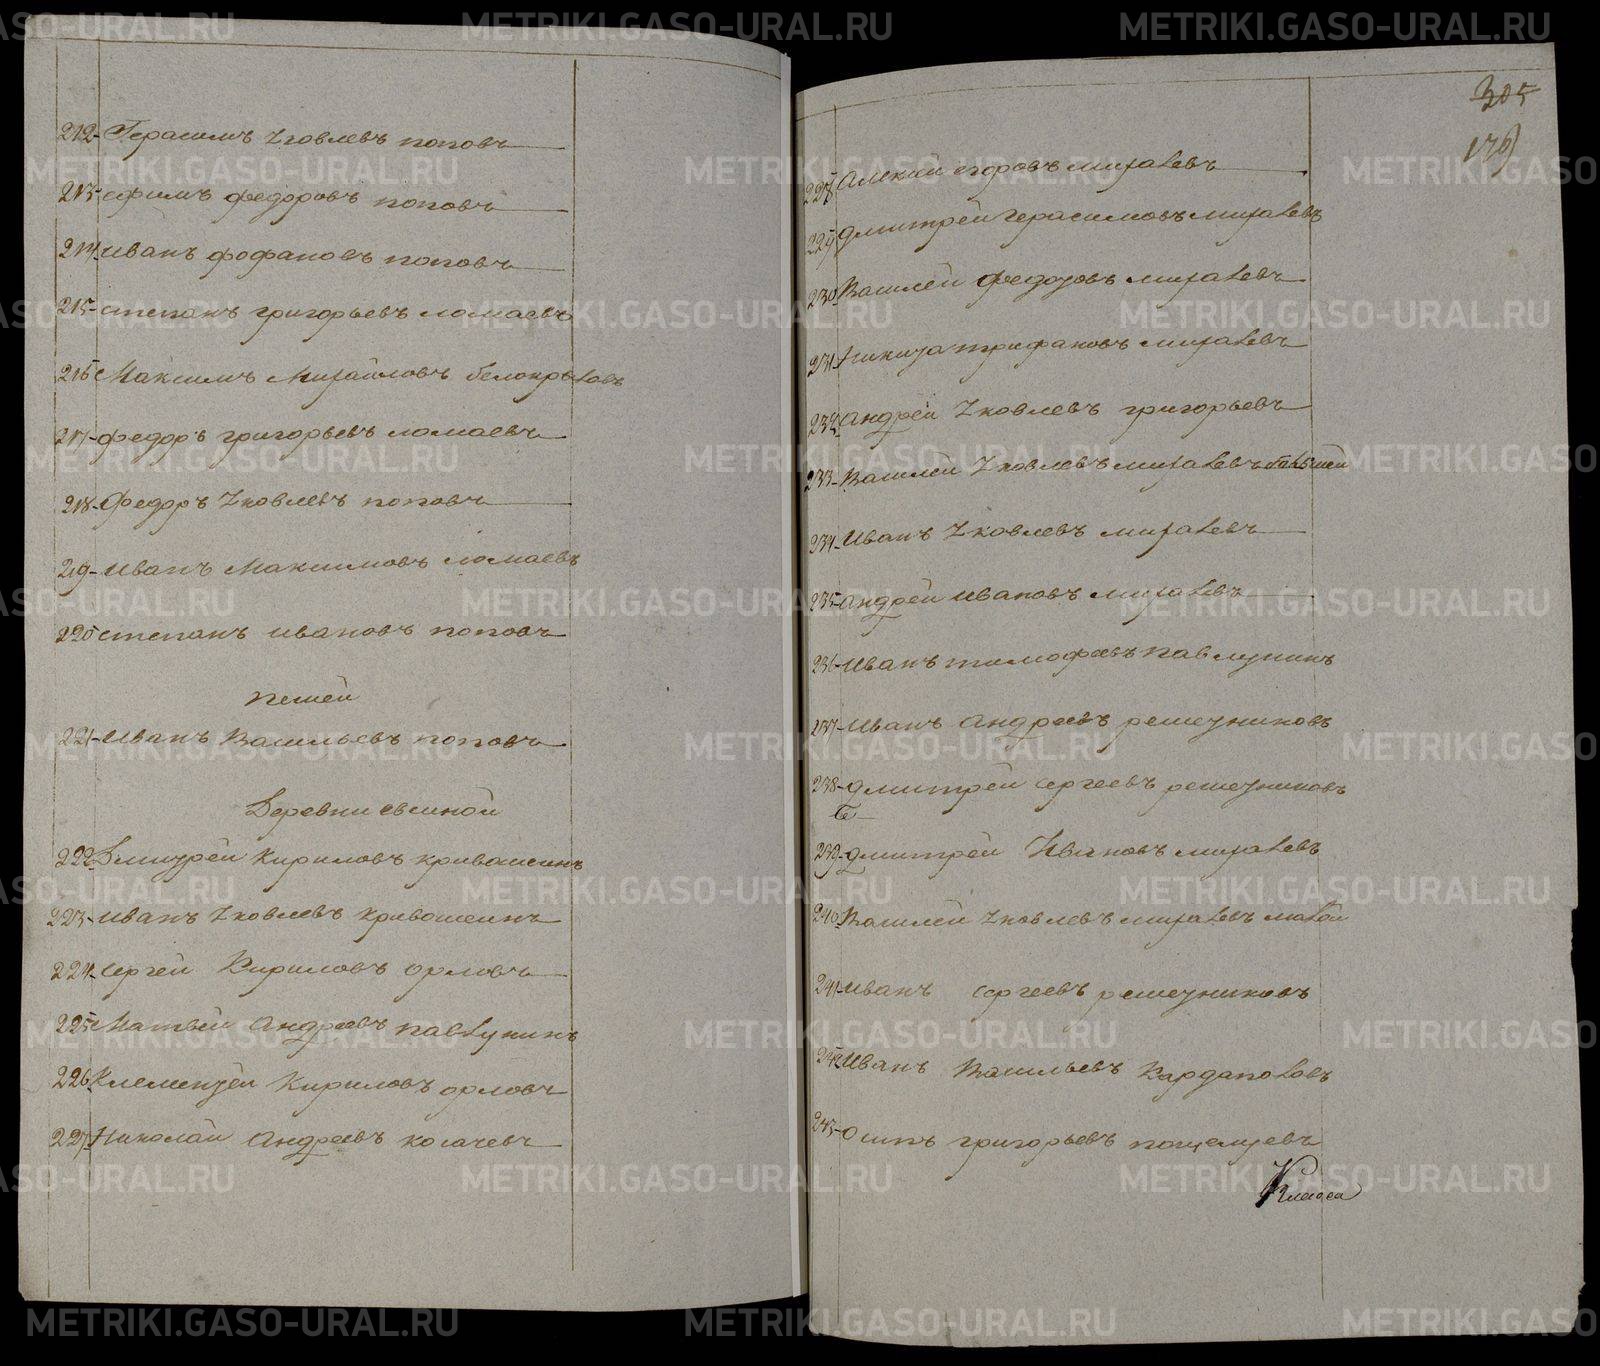 212 Герасимъ Яковлевъ поповъ
213 ефимъ федоровъ поповъ
214 иванъ фофановъ поповъ
215 степанъ григорьевъ ломаевъ
216 Максимъ Михайловъ
217 федоръ григорьевъ ломаевъ
218 Федоръ Яковлевъ поповъ
219 Иванъ Максимовъ ломаевъ
220 степанъ ивановъ поповъ
пешей
221 Иванъ Васильевъ поповъ
Деревни свиной
222 Дмитрей Кириловъ кривашеинъ
223 иванъ Яковлевъ кривошеинъ
224 сергей Кириловъ орловъ
225 Матвей Андреевъ павлунинъ
226 Клементей Кириловъ орловъ
227 Николай Андреевъ косачевъ
305
176
228 Алексей егоровъ михалевъ
229 дмитрей герасимовъ михалевъ
230 Василей Федоровъ михалевъ
231 Никита трифановъ михалевъ
232 андрей Яковлевъ григорьевъ
233 Василей Яковлевъ михалевъ большей
234 Иванъ Яковлевъ михалевъ
235 андрей ивановъ михалевъ
236 Иванъ тимофеевъ павлунинъ
237 Иванъ андреевъ решетниковъ
238 дмитрей сергеевъ решетниковъ
239 дмитрей Ивановъ михалевъ
240 Василей Яковлевъ михалевъ малой
241 иванъ сергеевъ решетниковъ
242 Иванъ Васильевъ Кардаполовъ
243 Осипъ григорьевъ пощелуевъ